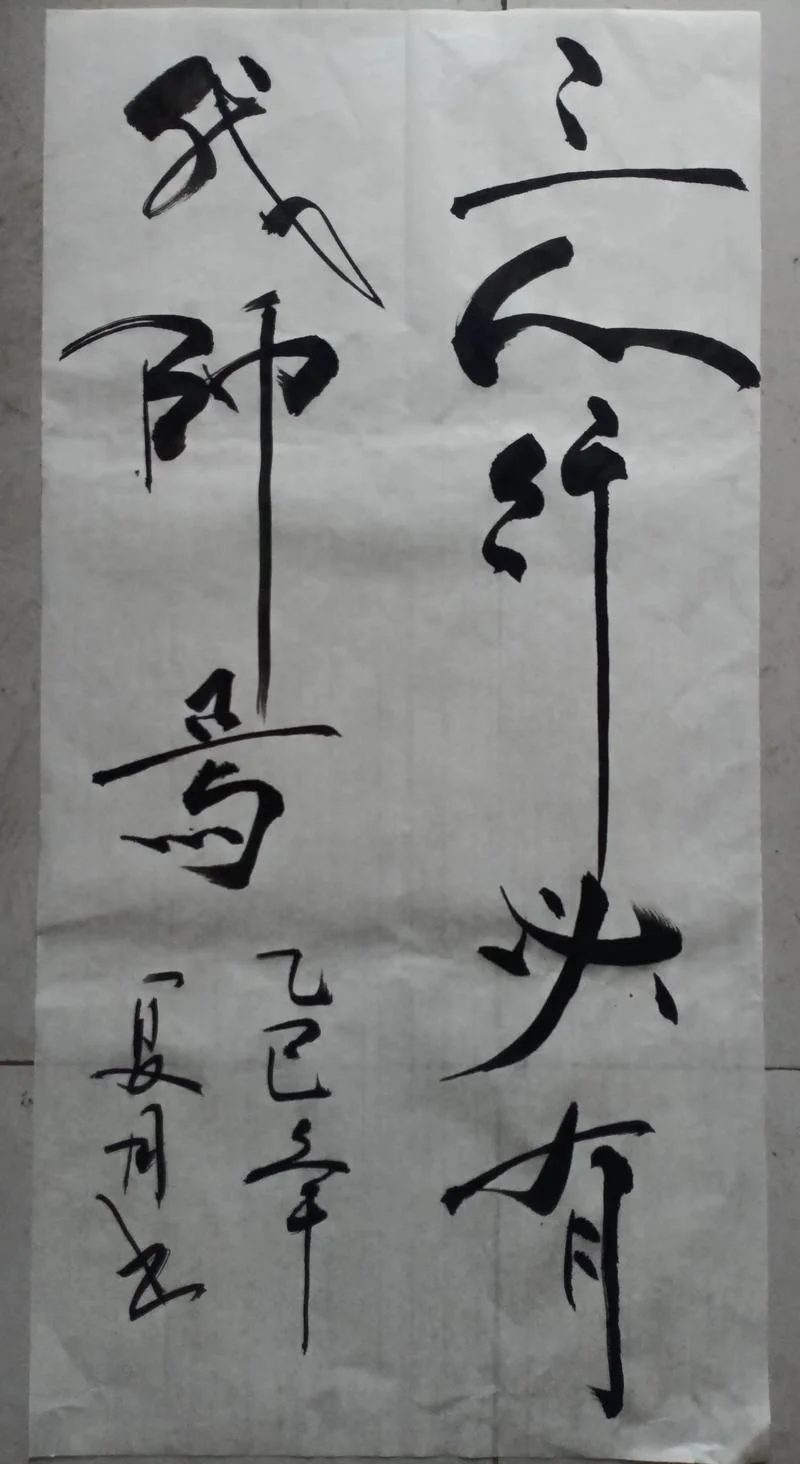 三人行必有
我師焉
乙巳年
夏月书